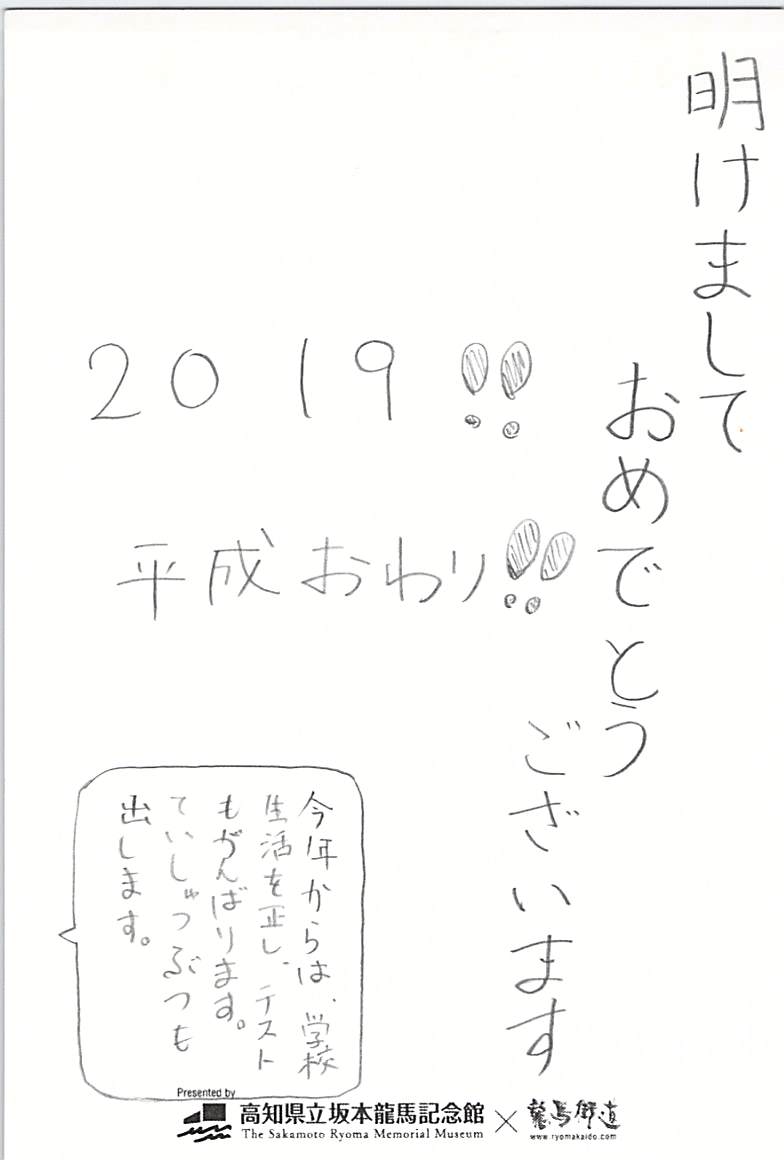 明けまして
おめでとう
ございます
2019!!
平成おわり!!
今年からは、学校
生活を正し、テスト
もがんばります。
ていしゅつぶつも
出します。
Presented by
高知県立坂本龍馬記念館 × 龍馬街道
The Sakamoto Ryoma Memorial Museum
www.ryomakaido.com